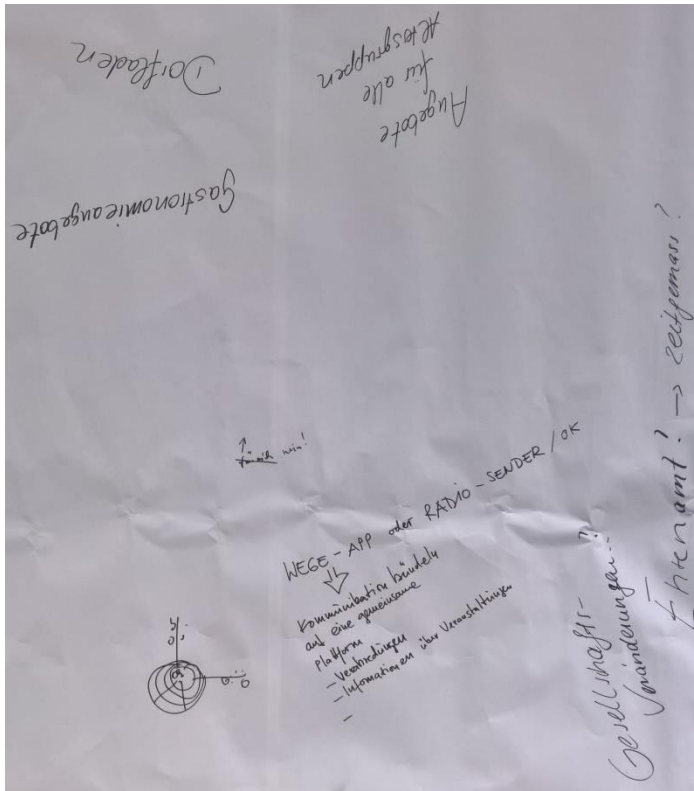 Dorfladen
Angebote
für alle
Altersgruppen
Gastronomieangebote
nein!
WEGE-APP oder RADIO-SENDER / OK
Kommunikation bündeln
auf eine gemeinsame
Plattform
- Verabredungen
- Informationen über Veranstaltungen
-
Gesellschafts-
Veränderungen..?
Ehrenamt? → zeitgemäss?